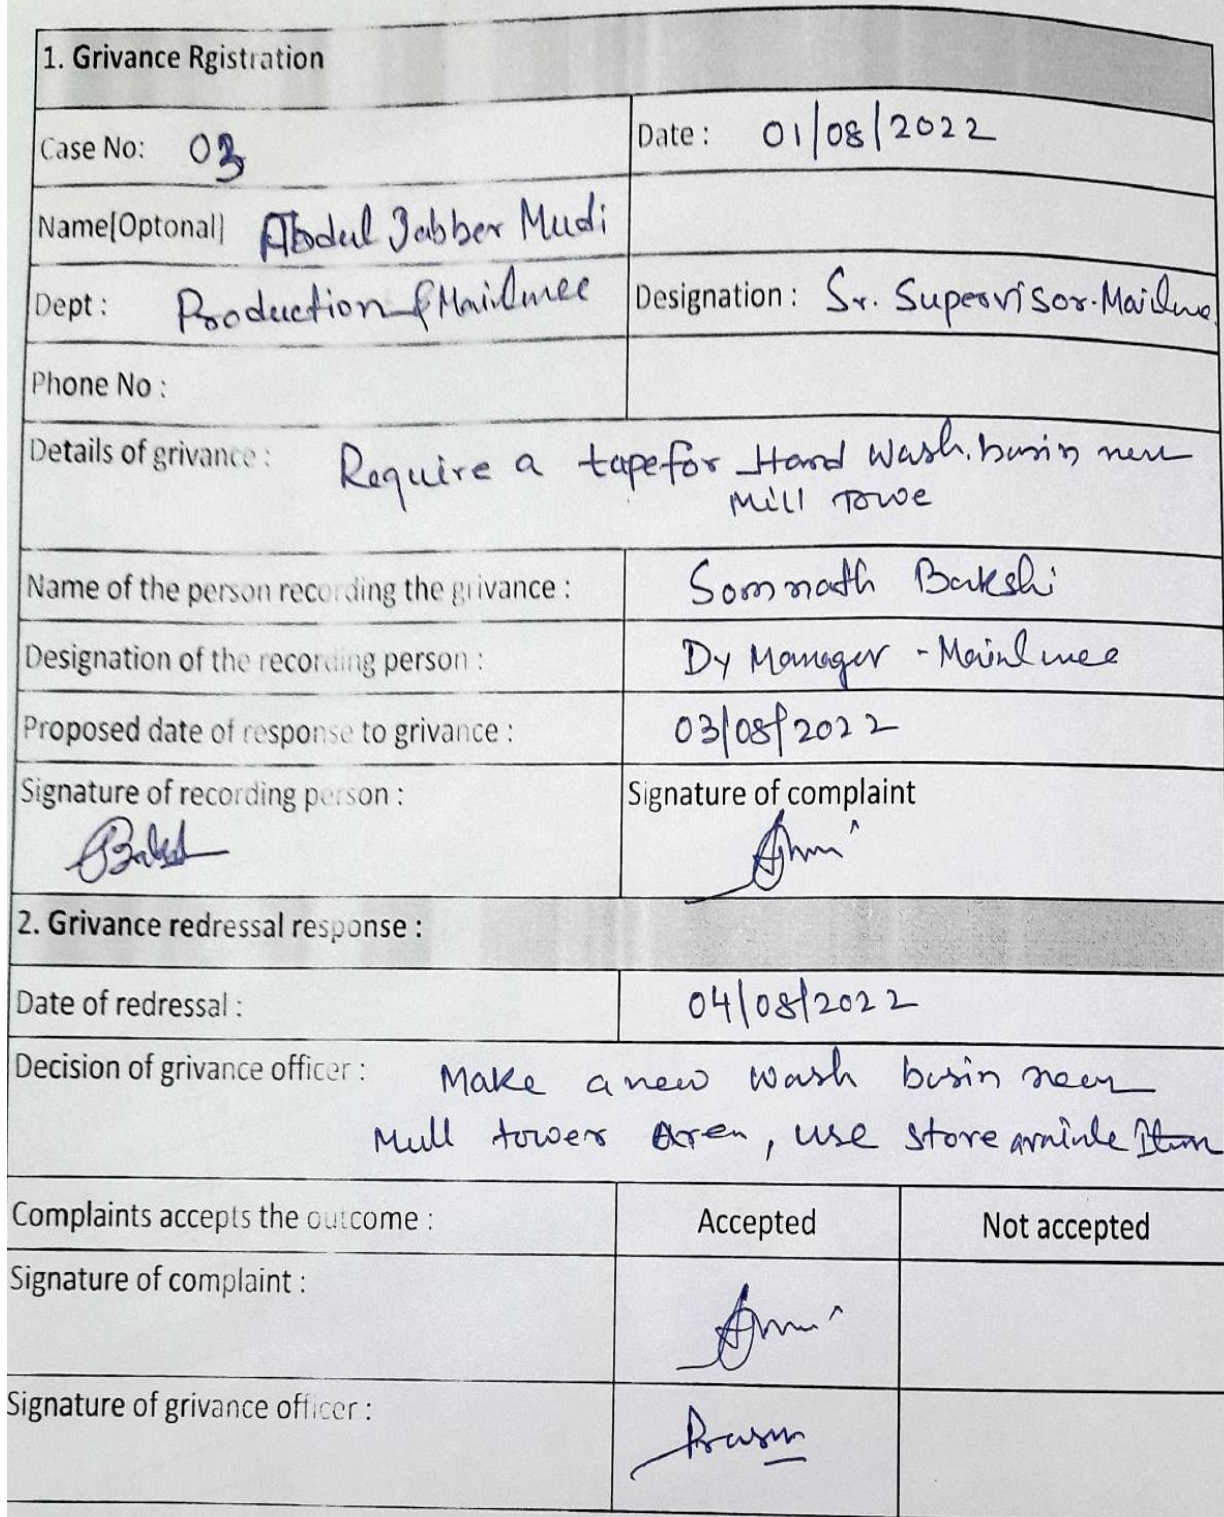 1. Grivance Rgistration
Case No: 03
Date : 01/08/2022
Name[Optonal] Abdul Jabber Mudi
Dept : Production &
Designation : Sr. Supervisor.
Phone No :
Details of grivance : Require a tape for Hand Wash. basin near
Mill Towe
Name of the person recording the grivance : Somnath Bakshi
Designation of the recording person : Dy Manager -
Proposed date of response to grivance : 03/08/2022
Signature of recording person :
Signature of complaint
2. Grivance redressal response :
Date of redressal : 04/08/2022
Decision of grivance officer : Make a new wash basin near
Mill tower Area, use store Item
Complaints accepts the outcome :
Accepted
Not accepted
Signature of complaint :
Signature of grivance officer :